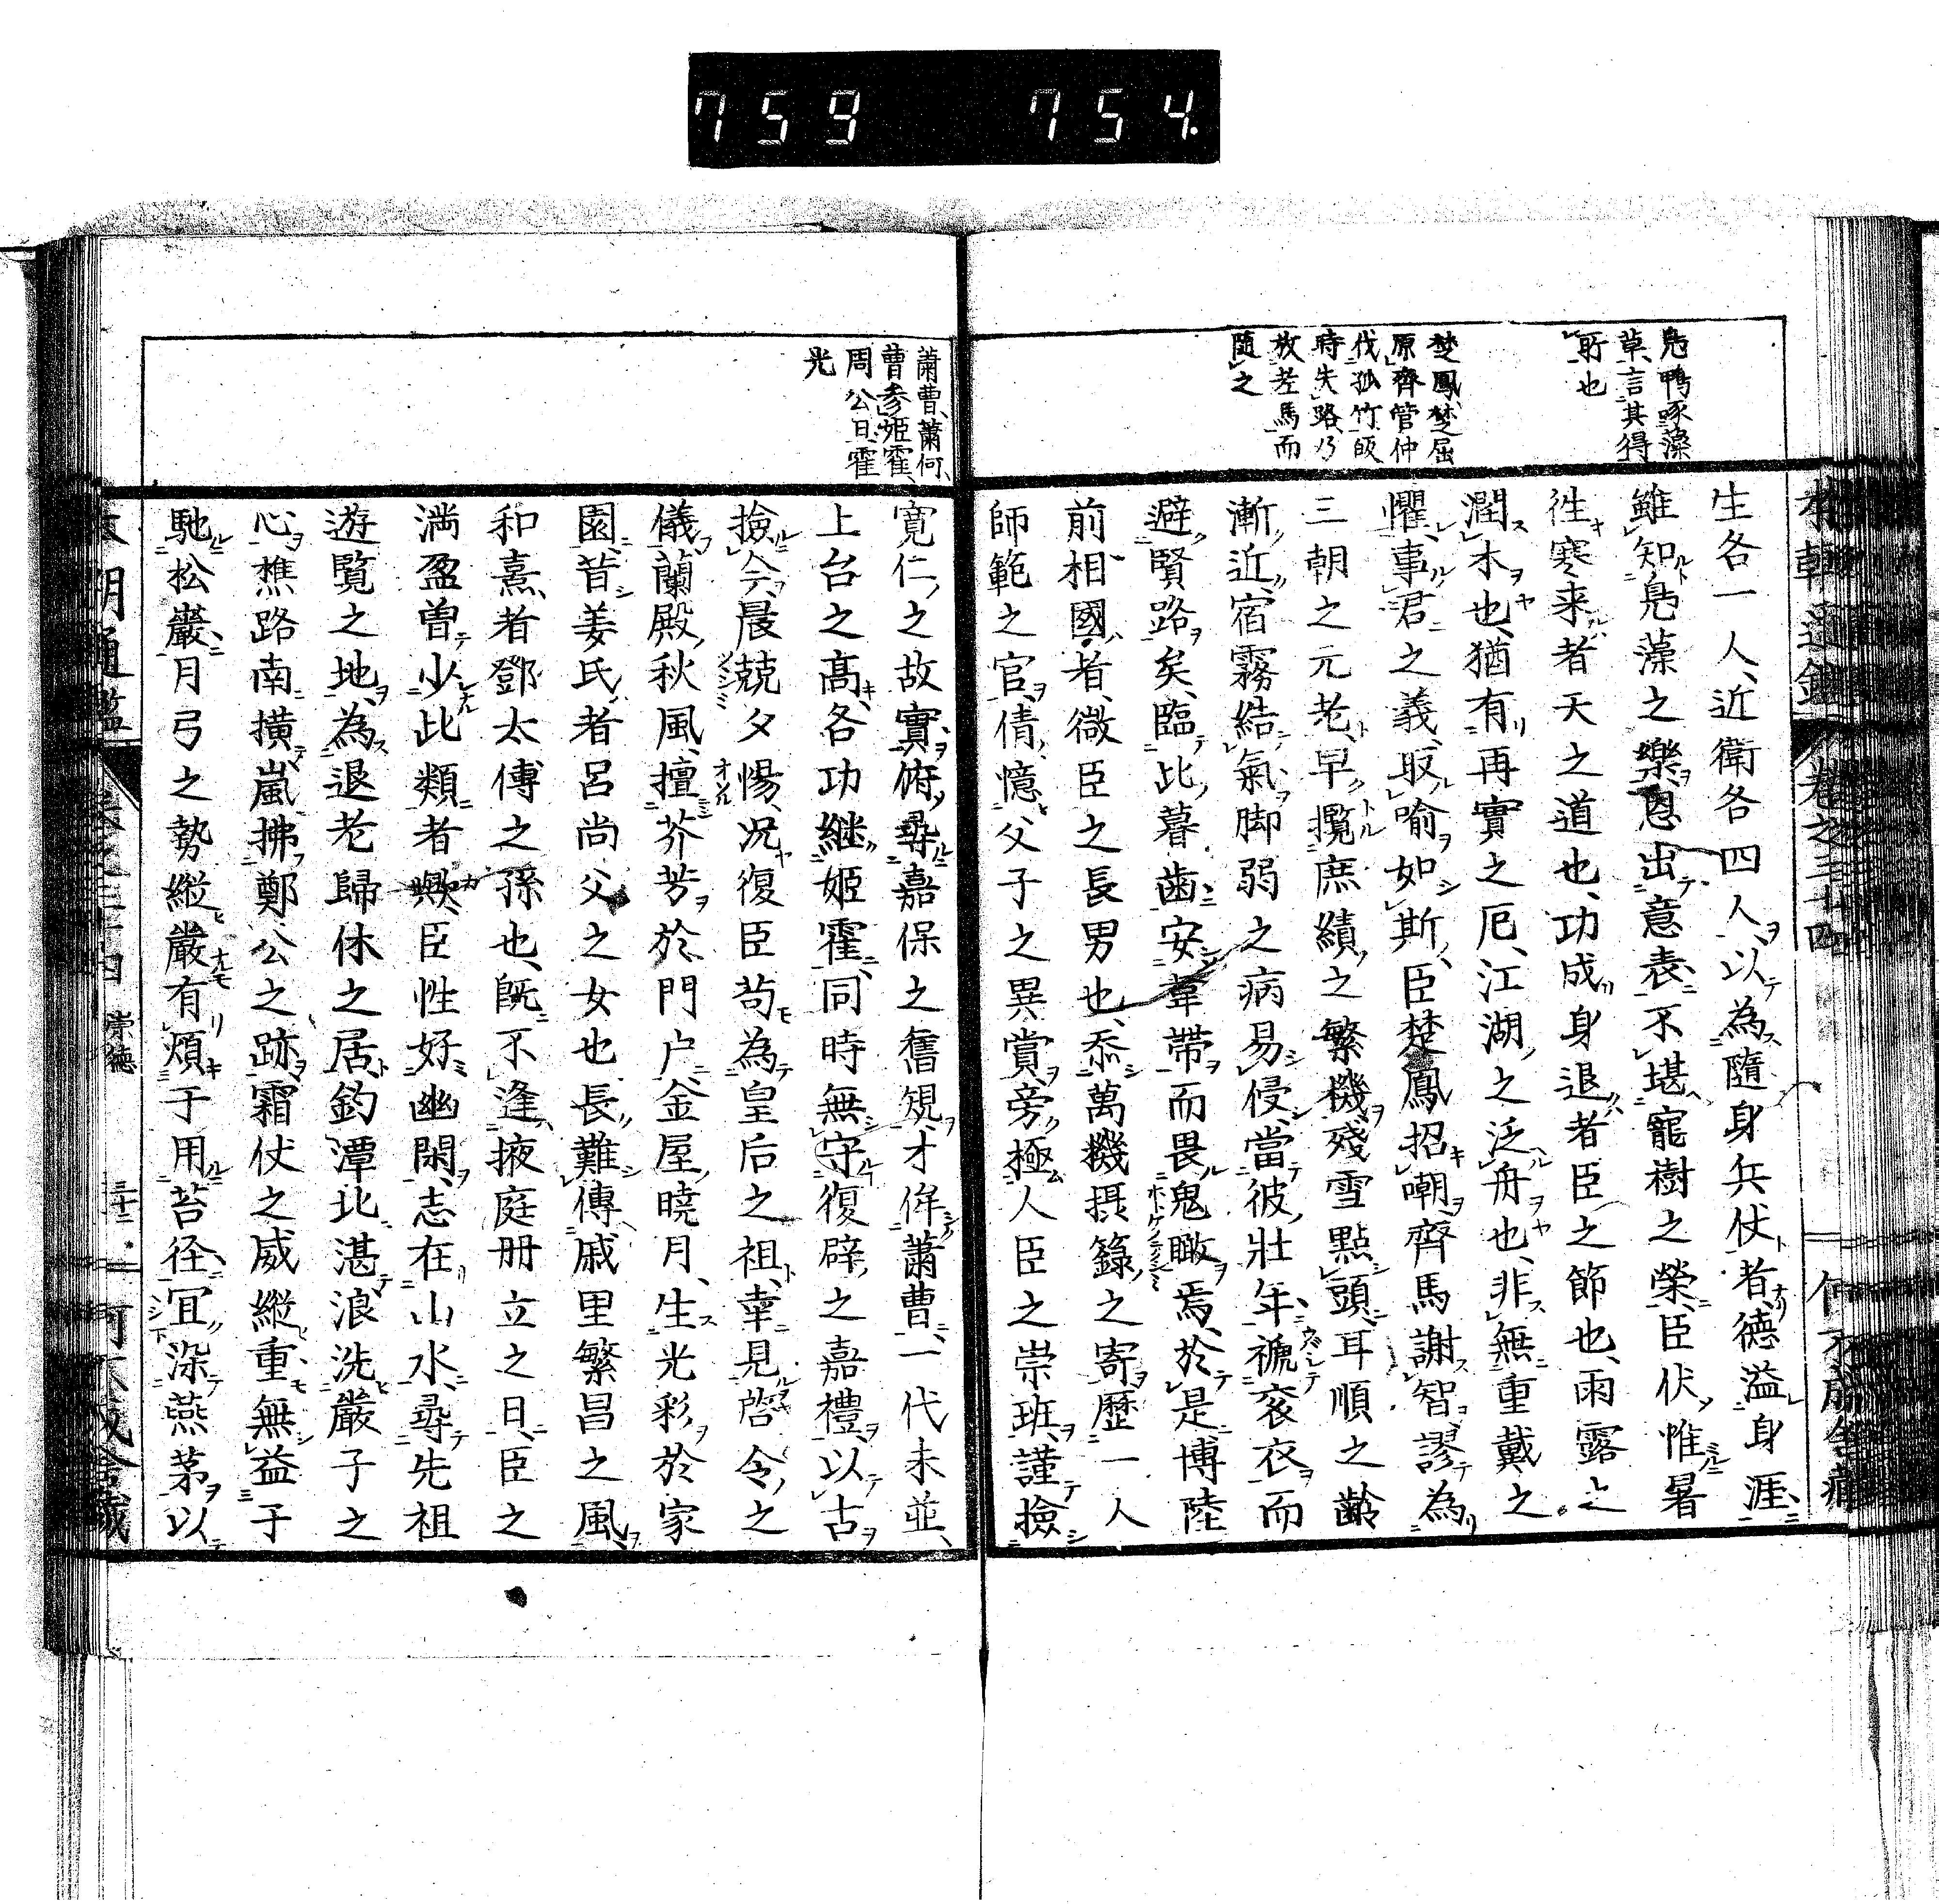 759 754.
鳬鴨啄藻
草言其得
所也
楚鳳楚屈
原齊管仲
伐孤竹皈
時失路乃
放老馬而
隨之
本朝通鑑 卷之三十四
生各一人、近衛各四人、以為隨身兵仗者、德溢身涯、
雖知鳬藻之樂、恩出意表、不堪寵樹之榮、臣伏惟、暑
徃寒来者天之道也、功成身退者臣之節也、雨露之
潤木也、猶有再實之厄、江湖之泛舟也、非無重戴之
懼、事君之義、取喻如斯、臣楚鳳招嘲、齊馬謝智、謬為
三朝之元老、早攬庶績之繁機、殘雪點頭、耳順之齡
漸近、宿霧結氣、脚弱之病易侵、當彼壯年、褫袞衣而
避賢路矣、臨此暮齒、安韋帶而畏鬼瞰焉、於是博陸
前相國者、微臣之長男也、忝萬機摂籙之寄、歷一人
師範之官、倩憶父子之異賞、旁極人臣之崇班、謹撿
蕭曹、蕭何、
曹參姬霍、
周公旦霍
光
寬仁之故實、俯尋嘉保之舊規、才侔蕭曹、一代未並、
上台之髙各功継姬霍、同時無守復辟之嘉禮、以古
撿今、晨兢夕惕、况復臣苟為皇后之祖、幸見啓令之
儀、蘭殿秋風、擅芥芳於門户、金屋曉月、生光彩於家
園、昔姜氏者呂尚父之女也、長難傳戚里繁昌之風、
和熹者鄧太傅之孫也、既不逢掖庭册立之日、臣之
満盈曽少比類者歟、臣性好幽閑、志在山水、尋先祖
遊覧之地、為退老歸休之居、釣潭北湛、浪洗嚴子之
心、樵路南横、嵐拂鄭公之跡、霜仗之威縱重、無益于
馳松巖、月弓之勢縱嚴、有煩于用苔径、冝深燕茅、以
崇德 三十二